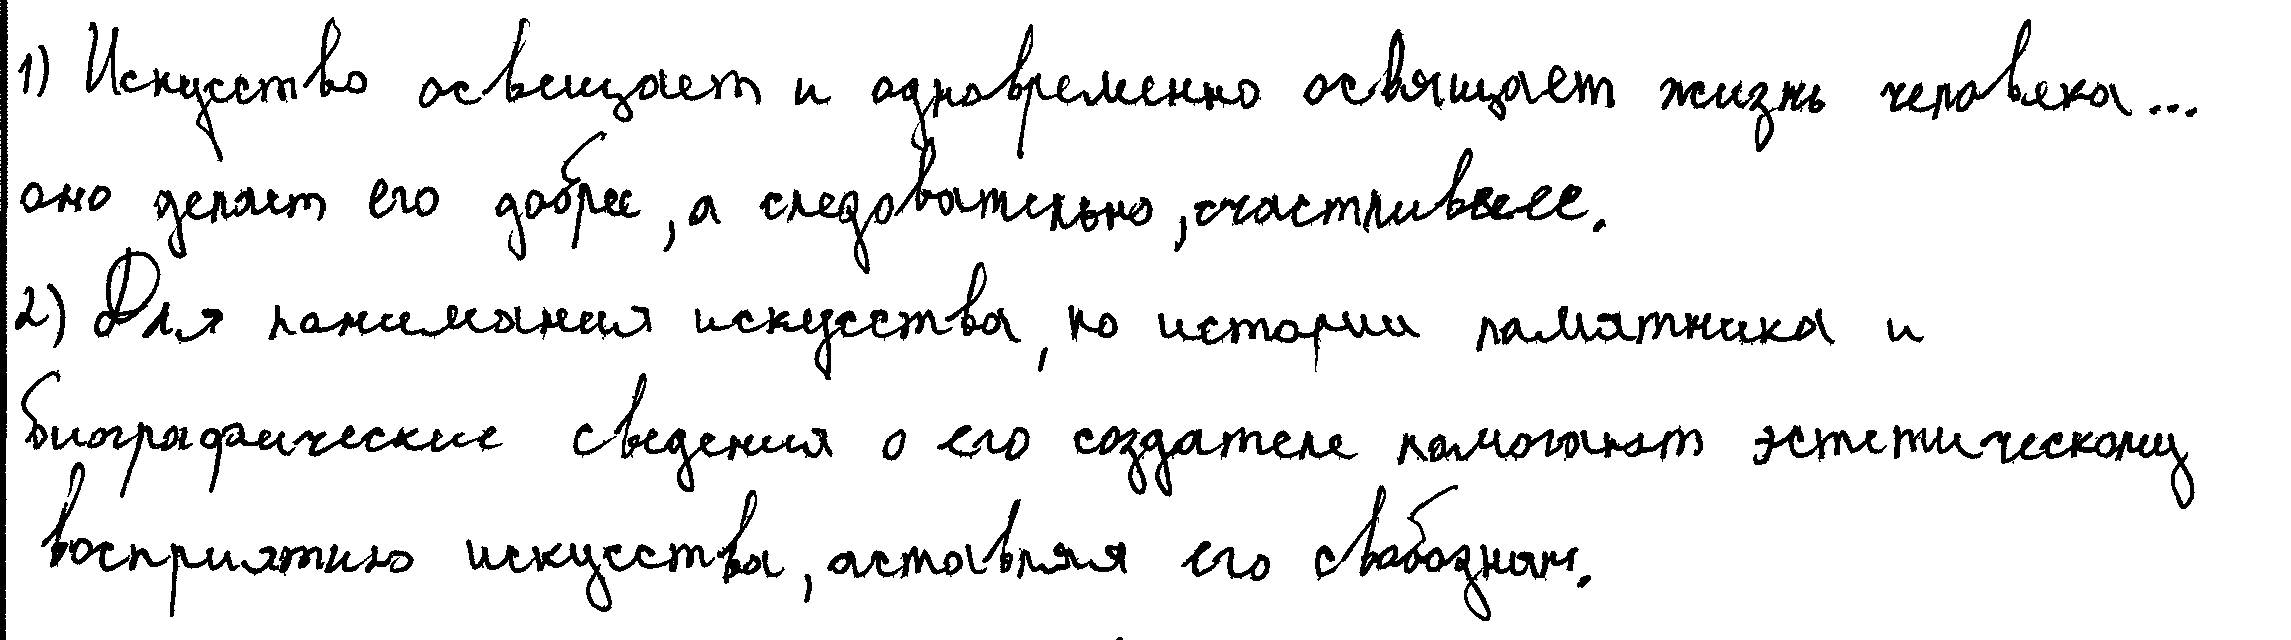 1) Искусство освещает и одновременно освящает жизнь человека...
оно делает его добрее, а следовательно, счастливее.
2) Для понимания искусства, по истории памятника и
биографические сведения о его создателе помогают эстетическому
восприятию искусства, оставляя его свободным.